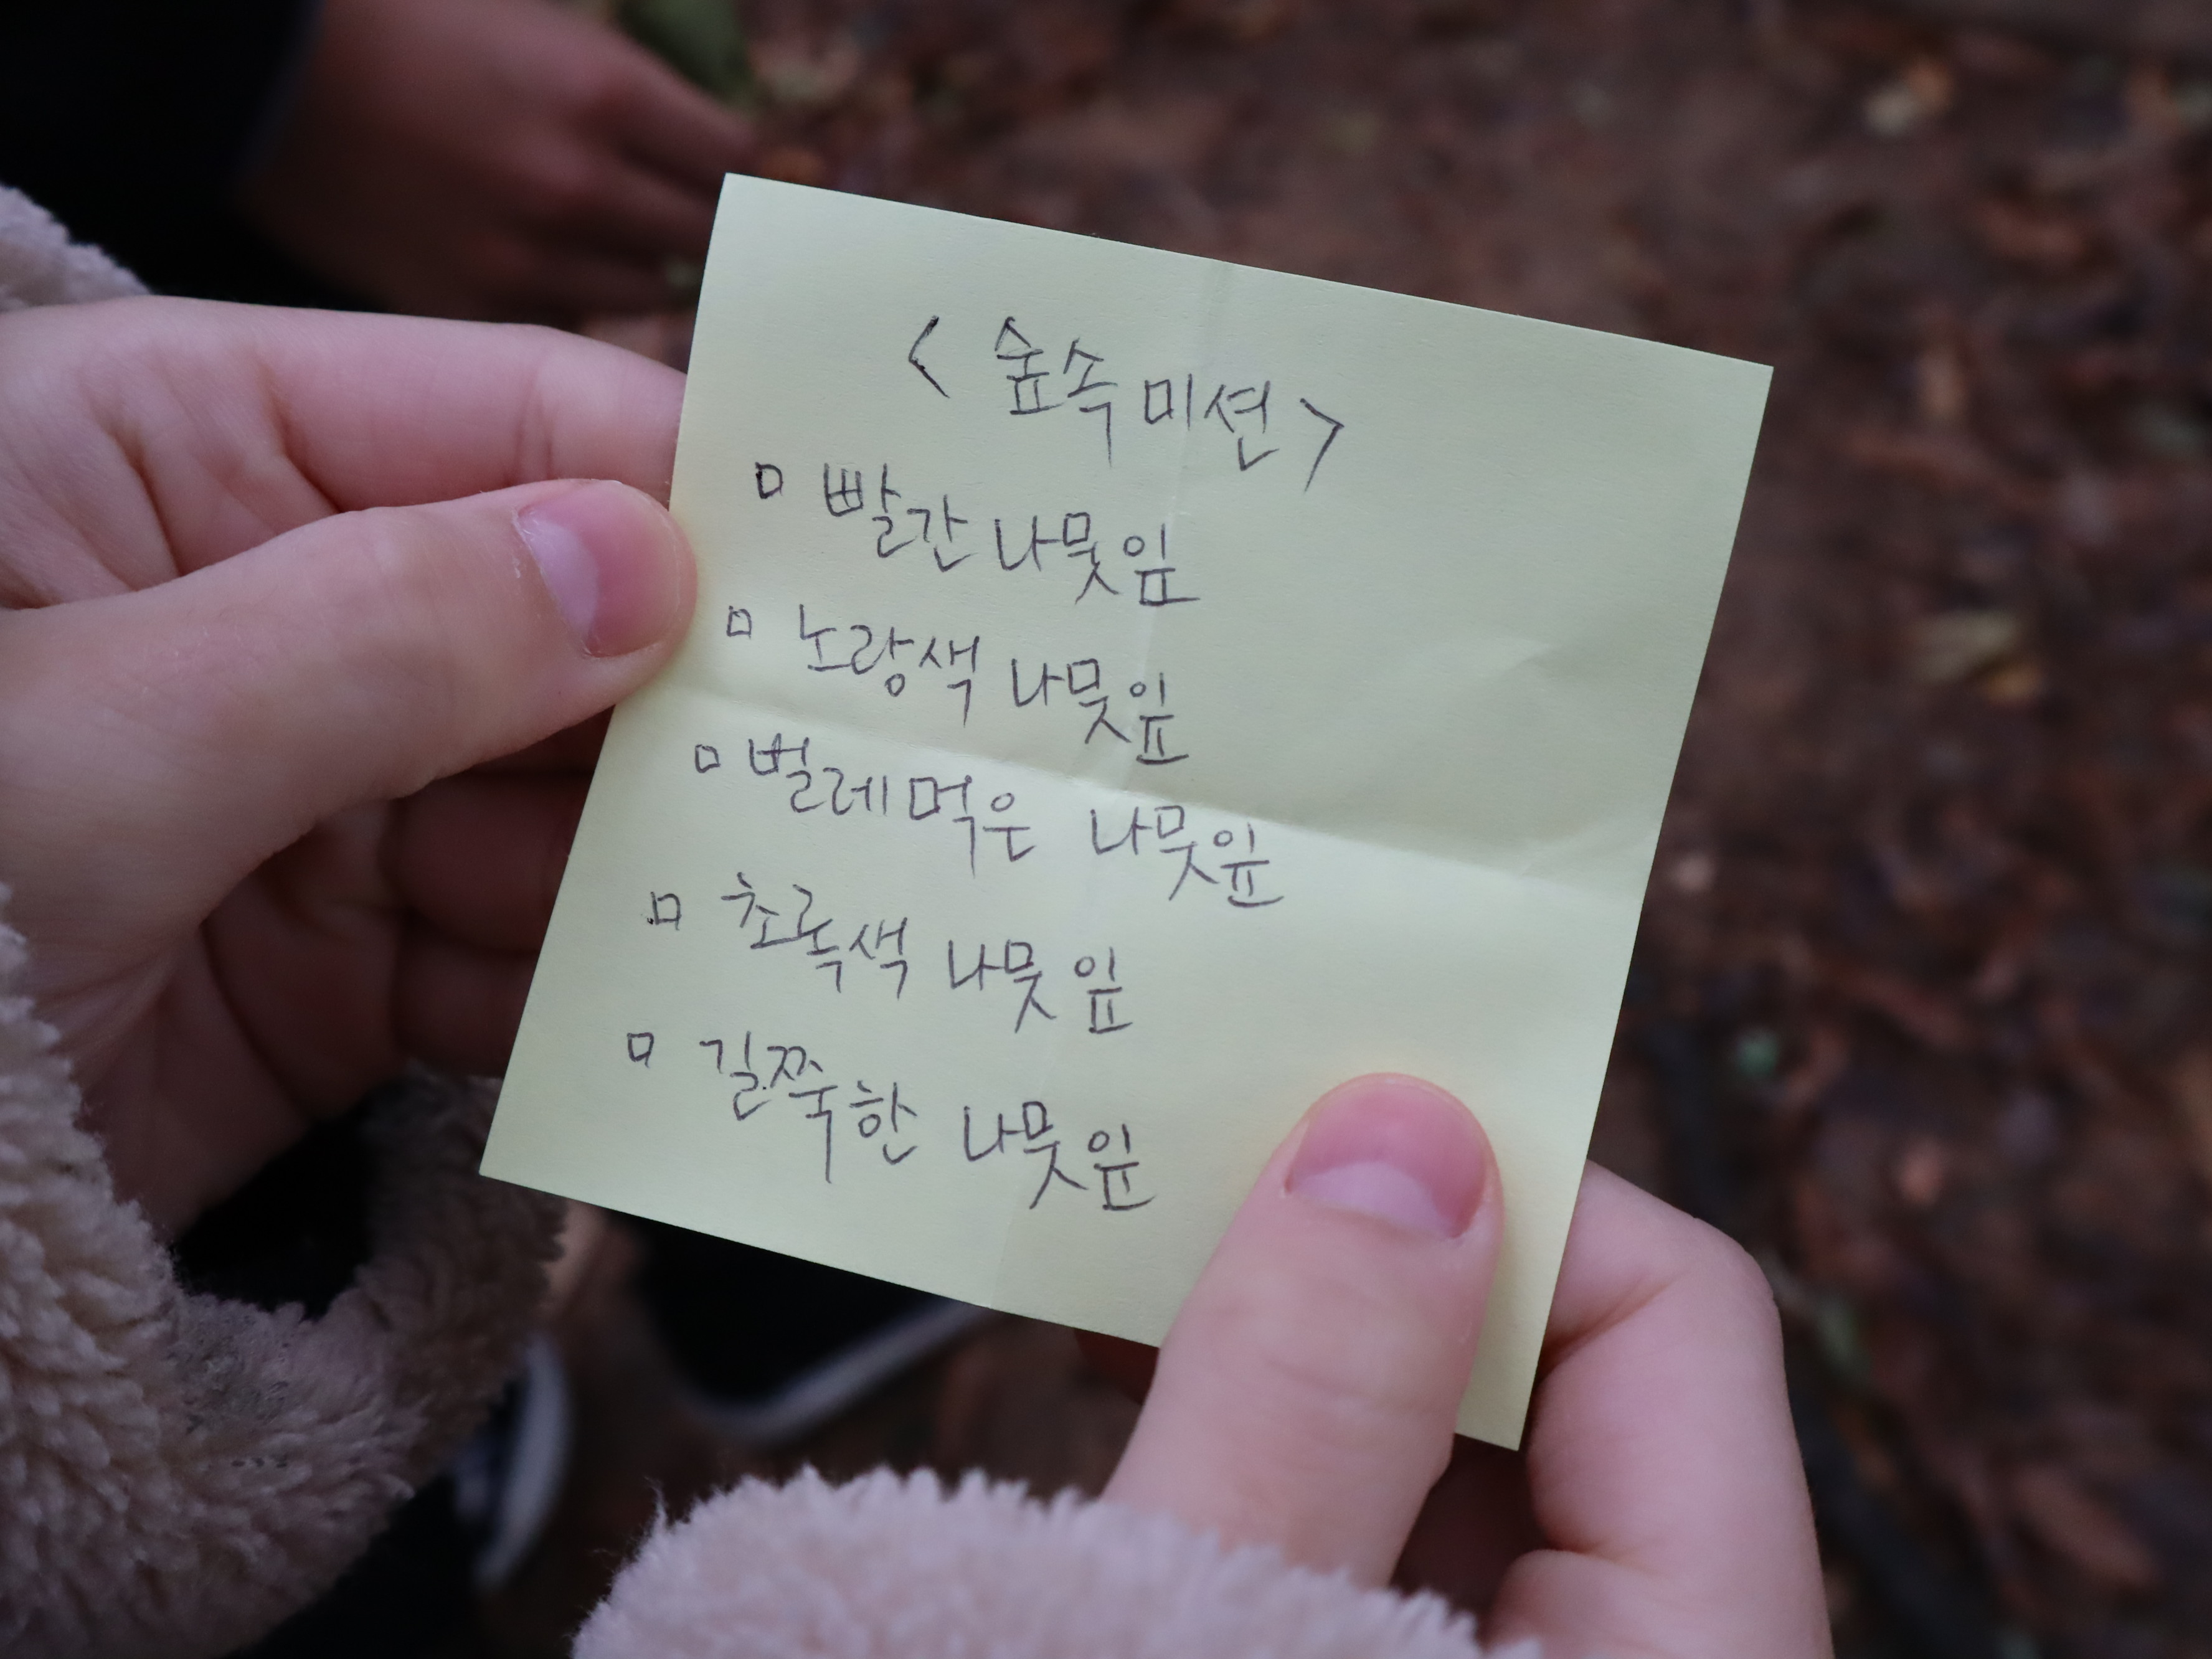 < 숲속 미션 >
□ 빨간 나뭇잎
□ 노랑색 나뭇잎
□ 벌레 먹은 나뭇잎
□ 초록색 나뭇잎
□ 길쭉한 나뭇잎